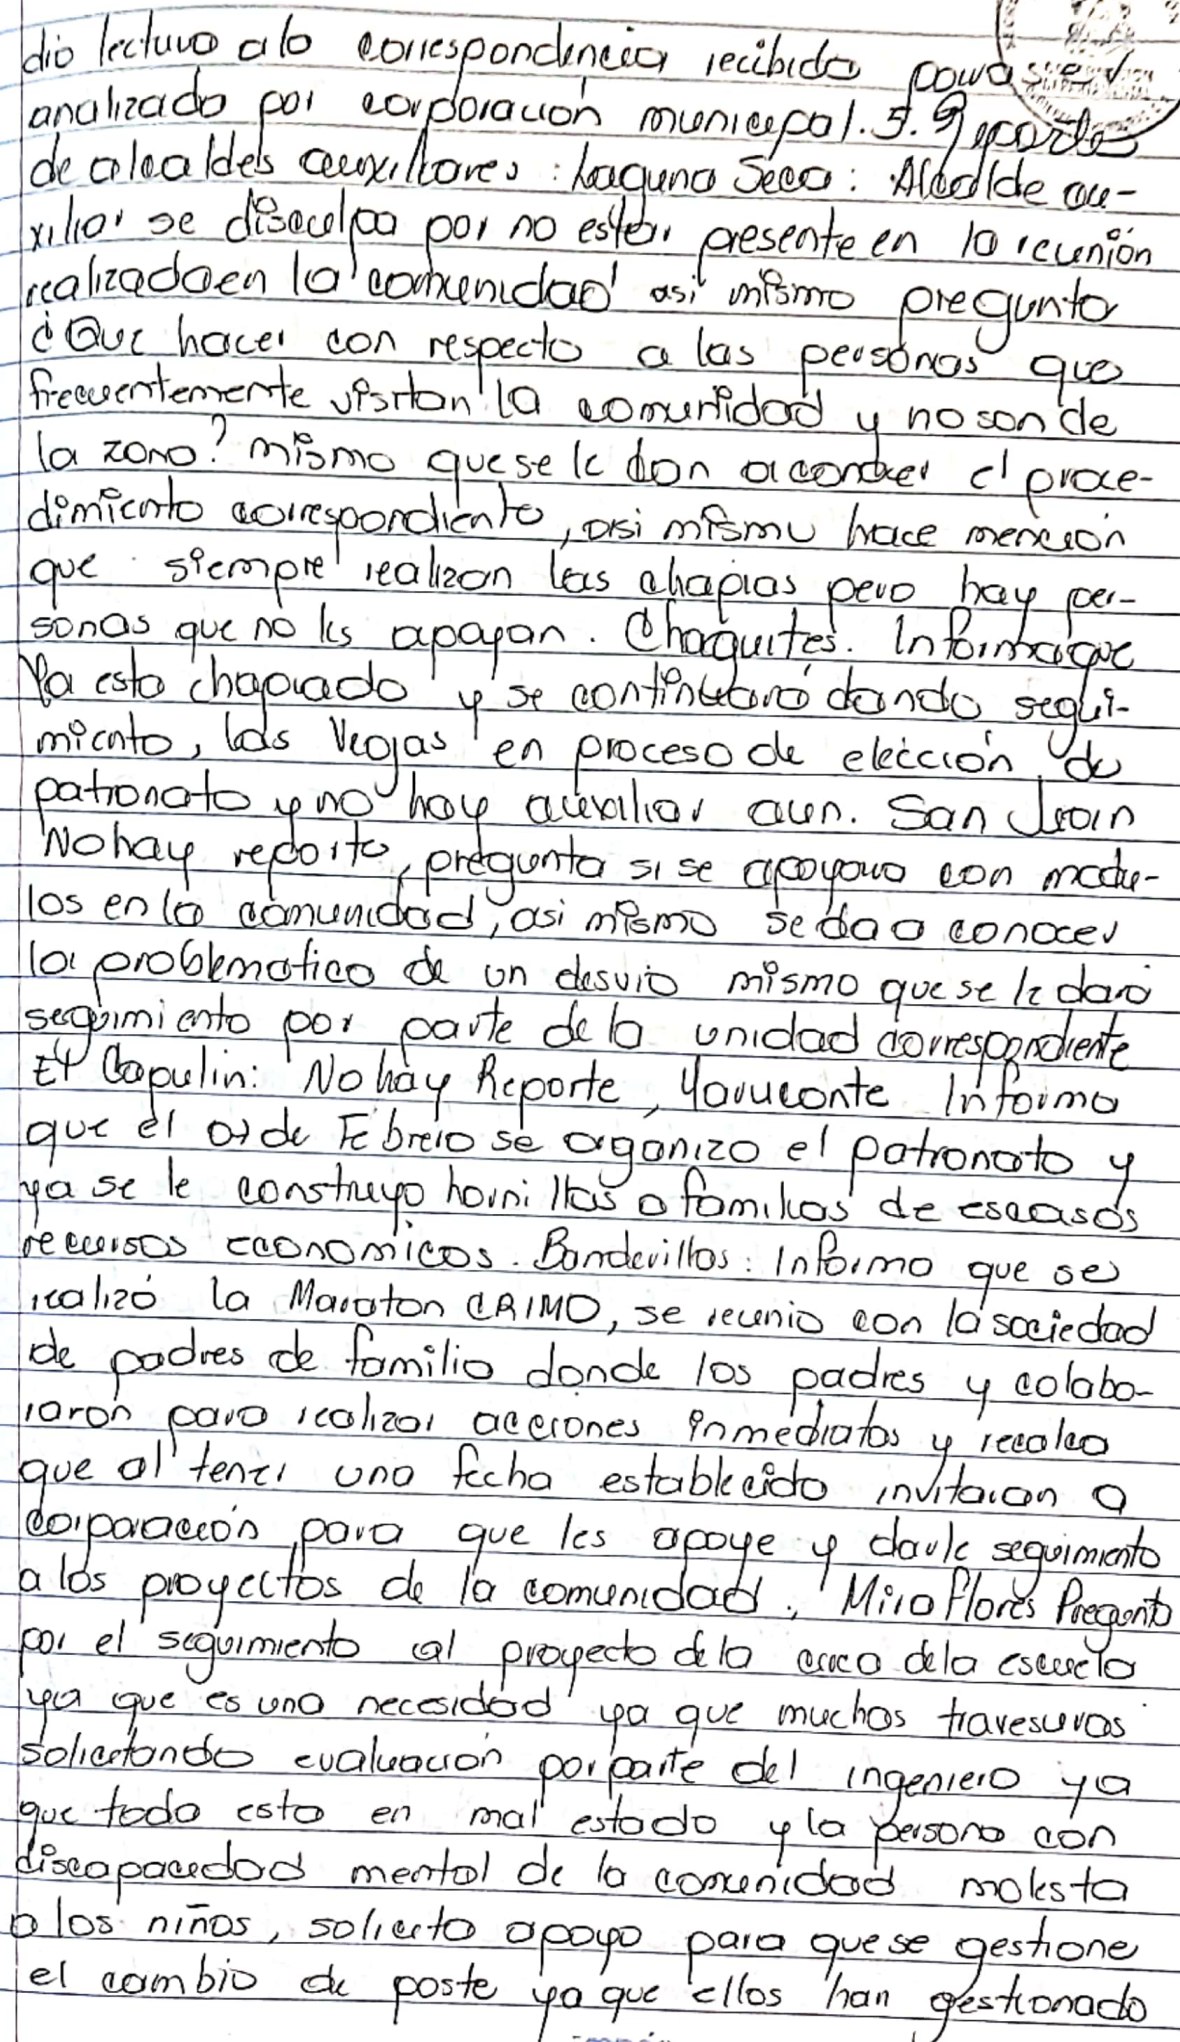 dio lectura a la correspondencia recibida para ser
analizado por corporación municipal. 5. Reportes
de alcaldes auxiliares: Laguna Seca: Alcalde au-
xiliar se disculpa por no estar presente en la reunión
realizada en la comunidad asi mismo pregunta
¿Que hacer con respecto a las personas que
frecuentemente visitan la comunidad y no son de
la zona? mismo que se le dan a conocer el proce-
dimiento correspondiente, asi mismo hace mención
que siempre realizan las chapias pero hay per-
sonas que no les apoyan. Chaguites. Informa que
Ya esta chapiado y se continuará dando segui-
miento, las Vegas en proceso de elección de
patronato y no hay auxiliar aun. San Juan
No hay reporte, pregunta si se apoyara con modu-
los en la comunidad, asi mismo se da a conocer
la problematica de un desvio mismo que se le dará
seguimiento por parte de la unidad correspondiente
El Capulin: No hay Reporte, Yarucante Informa
que el de Febrero se organizo el patronato y
ya se le construyo hornillas a familias de escasos
recursos economicos. Banderillas: Informa que se
realizó la Maraton CRIMO, se reunio con la sociedad
de padres de familia donde los padres y colabo-
raron para realizar acciones inmediatas y recalca
que al tener una fecha establecida invitaran a
corporación para que les apoye y darle seguimiento
a los proyectos de la comunidad. Miraflores Pregunta
por el seguimiento al proyecto de la cerca de la escuela
ya que es una necesidad ya que muchas travesuras
solicitando evaluación por parte del ingeniero ya
que todo esta en mal estado y la persona con
discapacidad mental de la comunidad molesta
a los niños, solicita apoyo para que se gestione
el cambio de poste ya que ellos han gestionado